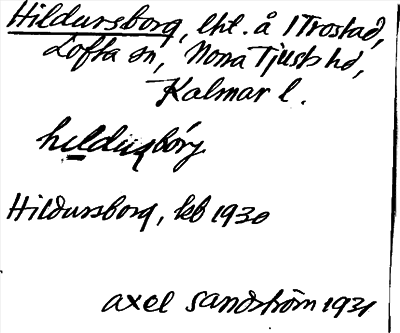 Hildursborg, lht. å 1 Trostad,
Lofta sn, Norra Tjusts hd,
Kalmar l.
hildusbórg
Hildursborg, kb 1930
Axel Sandström 1931